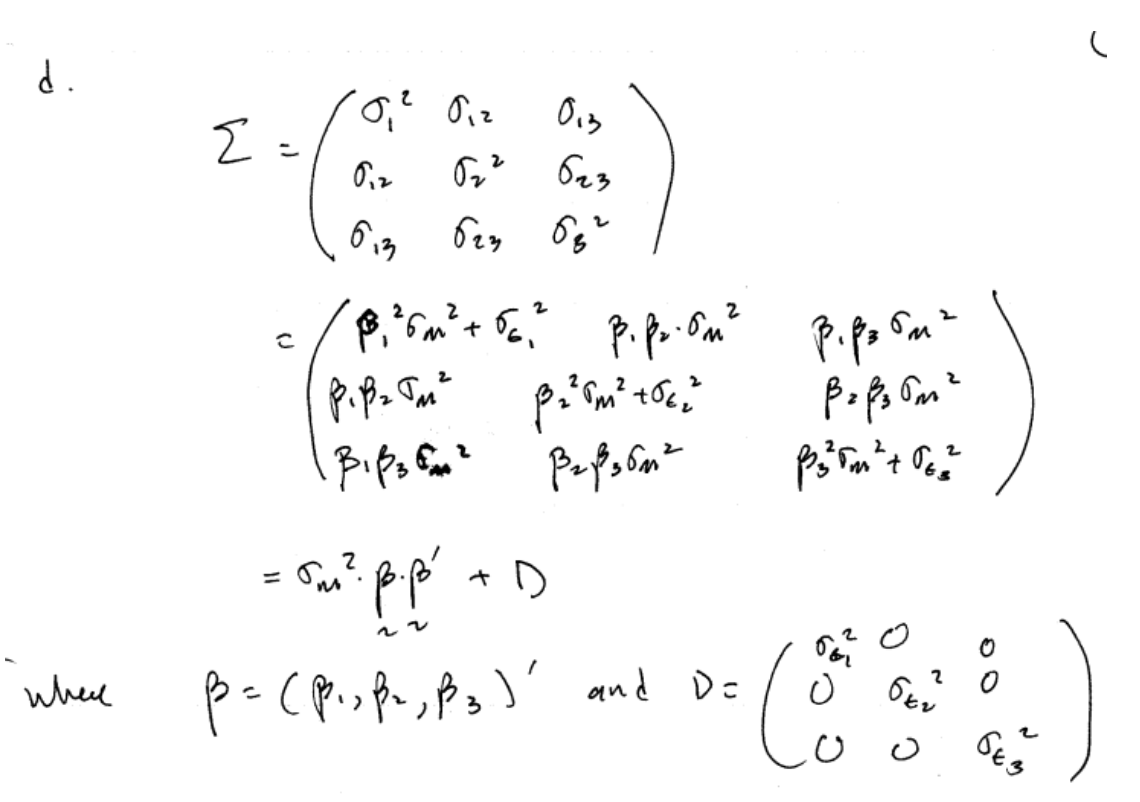 d.
Σ = ( σ₁² σ₁₂ σ₁₃
σ₁₂ σ₂² σ₂₃
σ₁₃ σ₂₃ σ₃² )
= ( β₁²σₘ² + σ_ε₁² β₁β₂·σₘ² β₁β₃σₘ²
β₁β₂σₘ² β₂²σₘ² + σ_ε₂² β₂β₃σₘ²
β₁β₃σₘ² β₂β₃σₘ² β₃²σₘ² + σ_ε₃² )
= σₘ²·β·β′ + D
~ ~
where β = (β₁, β₂, β₃)′ and D = ( σ_ε₁² 0 0
0 σ_ε₂² 0
0 0 σ_ε₃² )